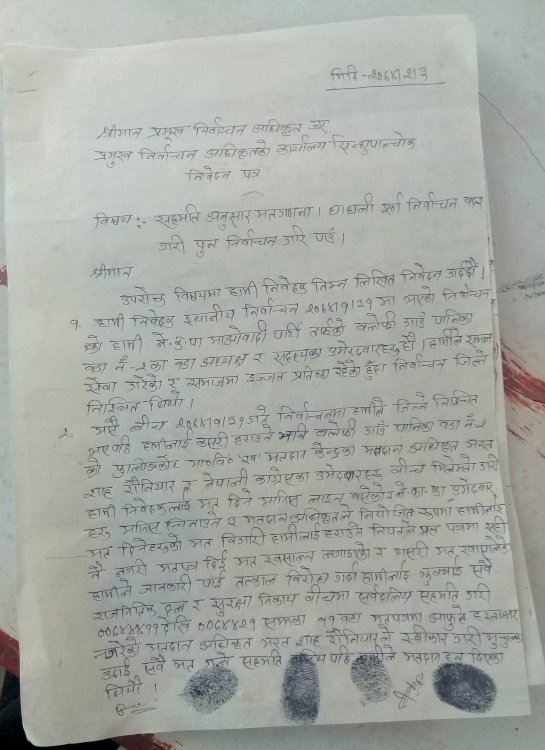 मिति-२०७४।२।३
श्रीमान प्रमुख निर्वाचन अधिकृत ज्यू
प्रमुख निर्वाचन अधिकृतको कार्यालय सिन्धुपाल्चोक
निवेदन पत्र
विषय:- सहमति अनुसार मतगणना । धाधली पूर्ण निर्वाचन बदर
गरी पुन निर्वाचन गरि पाउँ ।
श्रीमान
उपरोक्त विषयमा हामी निवेदक निम्न लिखित निवेदन गर्दछौं ।
१. हामी निवेदक स्थानीय निर्वाचन २०७४।१।३१ मा भएको निर्वाचन
को हामी ने.क.पा माओवादी पार्टी तर्फको बलेफी गाउँ पालिका
वडा नं-२ का वडा अध्यक्ष र सदस्यका उमेदवारहरु हौ । हामीले समाज
सेवा गरेको र समाजमा इज्जत प्रतिष्ठा रहेको हुँदा निर्वाचन जित्ने
निश्चित थियो ।
२. यसै बीच २०७४।१।३१ गते निर्वाचनमा हामीले जित्ने निश्चित
भए पछि हामीलाई कसरी हराउने भनि बलेफी गाउँ पालिका वडा नं-२
को मतदान केन्द्रका मतदान अधिकृत भरत
शाह सोनियार र नेपाली काग्रेसका उमेदवारहरु बीच मिलेमतो गरी
हामी निवेदकलाई मत दिने मानिस लाइन बसेकोर ने.का.का उमेदवार
हरु मानिस र मतदान अधिकृतले नियोजित रुपमा हामीलाई
मत दिनेहरुको मत बिगारी हामीलाई हराउने नियतले
नै नगरी मतपत्र दिई मत खसाल्न लगाइएको र यसरी मत
हामीले जानकारी पाई तत्काल विरोध गर्दा हामीलाई सबै
राजनितिक दल र सुरक्षा निकाय बीचमा सर्वदलिय सहमति गरी
देखि सम्मका ११ वटा मतपत्रमा आफुले हस्ताक्षर
गरेको मतदान अधिकृत भरत शाह सोनियारले स्वीकार गरी मुचुल्का
उठाई सबै मत गन्ने सहमति पछि हामीले मतदान हुन दिएका
थियौ ।